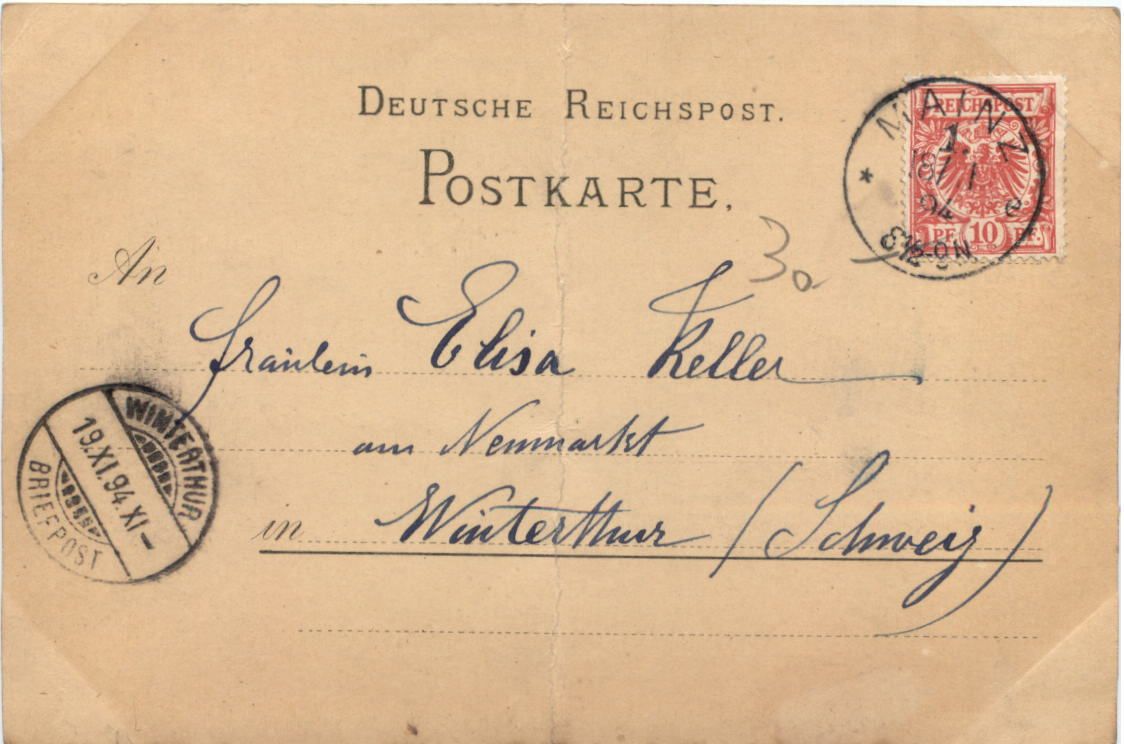 DEUTSCHE REICHSPOST.
POSTKARTE.
REICHSPOST
PF 10 PF.
MAINZ
1.
18/11
94
8½-9N
e
3a
An
Fräulein Elisa Keller
am Neumarkt
in Winterthur (Schweiz)
WINTERTHUR
19.XI.94.XI-
BRIEFPOST